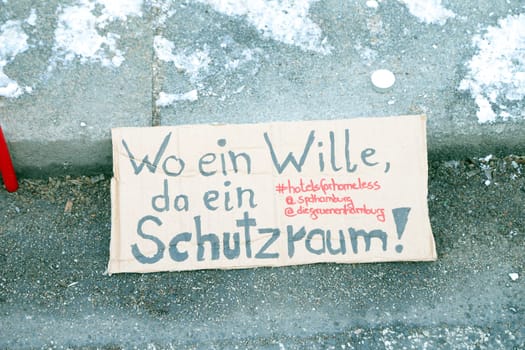 Wo ein Wille,
da ein
#hotelsforhomeless
@spdhamburg
@diegruenenhamburg
Schutzraum!